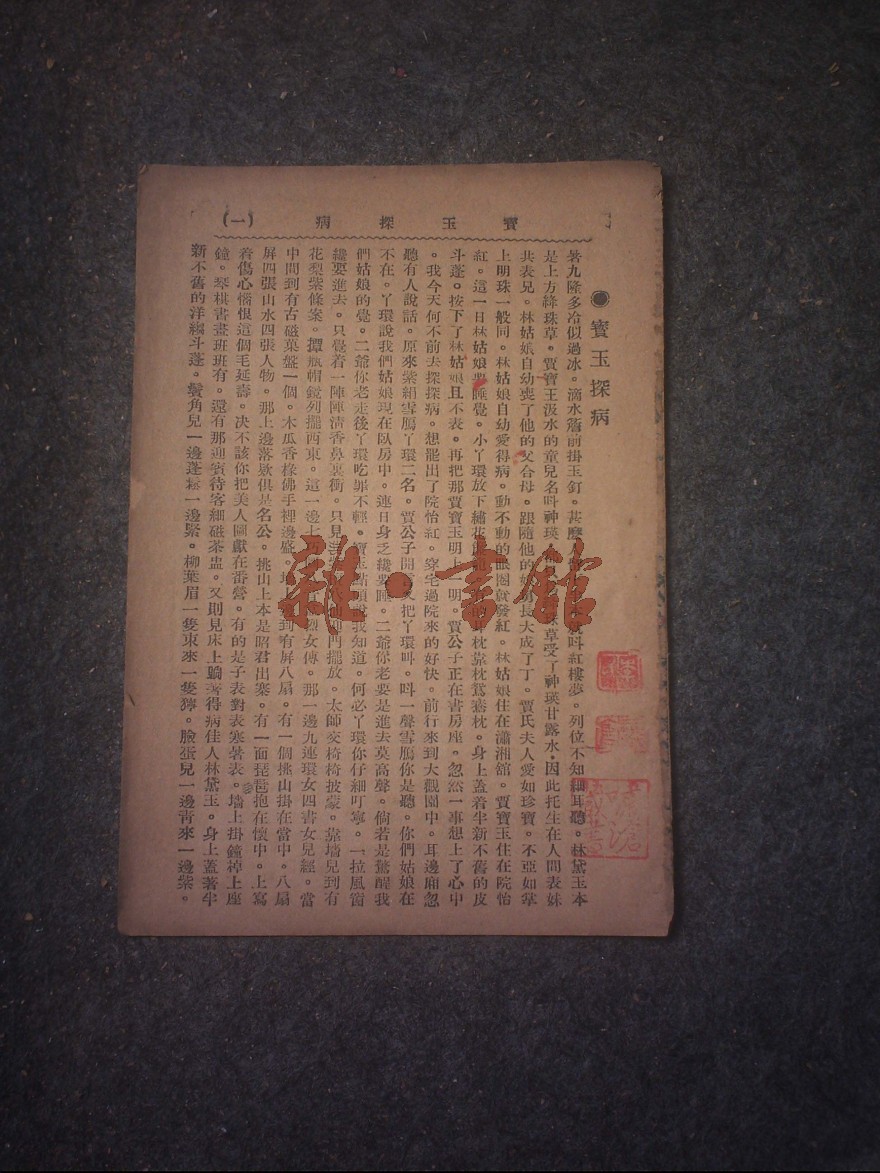 寶玉探病
(一)
◉寶玉探病
暑九隆多冷似過冰。滴水簷前掛玉釘。甚麽人 呌紅樓夢。列位不知細耳聽。林黛玉本
是上方絳珠草。賈寶玉汲水的童兒名呌神瑛。 珠草受了神瑛甘露水。因此托生在人間表妹
共表兄。林姑娘自幼喪了他的父合母。跟隨他的 長大成了丁。賈氏夫人愛如珍寶。不亞如掌
上明珠一般同。林姑娘自幼愛得病。動不動的眼圈就發紅。林姑娘住在瀟湘舘。賈寶玉住在院怡
紅。這一日林姑娘要睡覺。小丫環放下繡花 枕靠枕鴛鴦枕。身上蓋着半新不舊的皮
斗蓬。按下了林姑娘且不表。再把那賈寶玉明上一明。賈公子正在書房座。忽然一事想上了心中
。我今天何不前去探探病。想罷出了院怡紅。穿宅過院來的好快。前行來到大觀園中。耳邊廂忽
聽有人說話。原來紫絹雪鴈丫環二名。賈公子開言又把丫環呌。呌一聲雪鴈你是聽。你們姑娘在
不在。丫環說我們姑娘現在臥房中。連日身乏纔要睡。二爺你老要是進去莫高聲。倘若是驚醒我
們姑娘的覺。二爺你老走後丫環吃罪不輕。寶玉點頭說我知道。何必丫環你仔細叮寧。一拉風窗
纔要進去。只覺着一陣陣清香鼻裏衝。只見 迎門擺放。太師交椅椅披蒙。靠墻兒到有
花梨紫條案。撢瓶帽鏡列擺西東。這一邊 烈女傳。那一邊九連環女四書女兒經。當
中間到有古磁菓盤一個。木瓜香橼佛手裡邊盛。 到有屏八扇。有一個挑山掛在當中。八扇
屏四張山水四張人物。那上邊落欵俱是名公。挑山上本是昭君出寨。有一面琵琶抱在懷中。上寫
着傷心惱恨這個毛延壽。决不該你把美人圖獻在番營。有的是子表對表寒暑表。墻上掛鐘掉上座
鐘。琴棋書畫班班有。還有那迎賓待客細磁茶盅。又則見床上躺著得病佳人林黛玉。身上蓋著半
新不舊的洋縐斗蓬。鬢角兒一邊蓬鬆一邊緊。柳葉眉一隻東來一隻 。臉蛋兒一邊靑來一邊紫。
雜·書舘